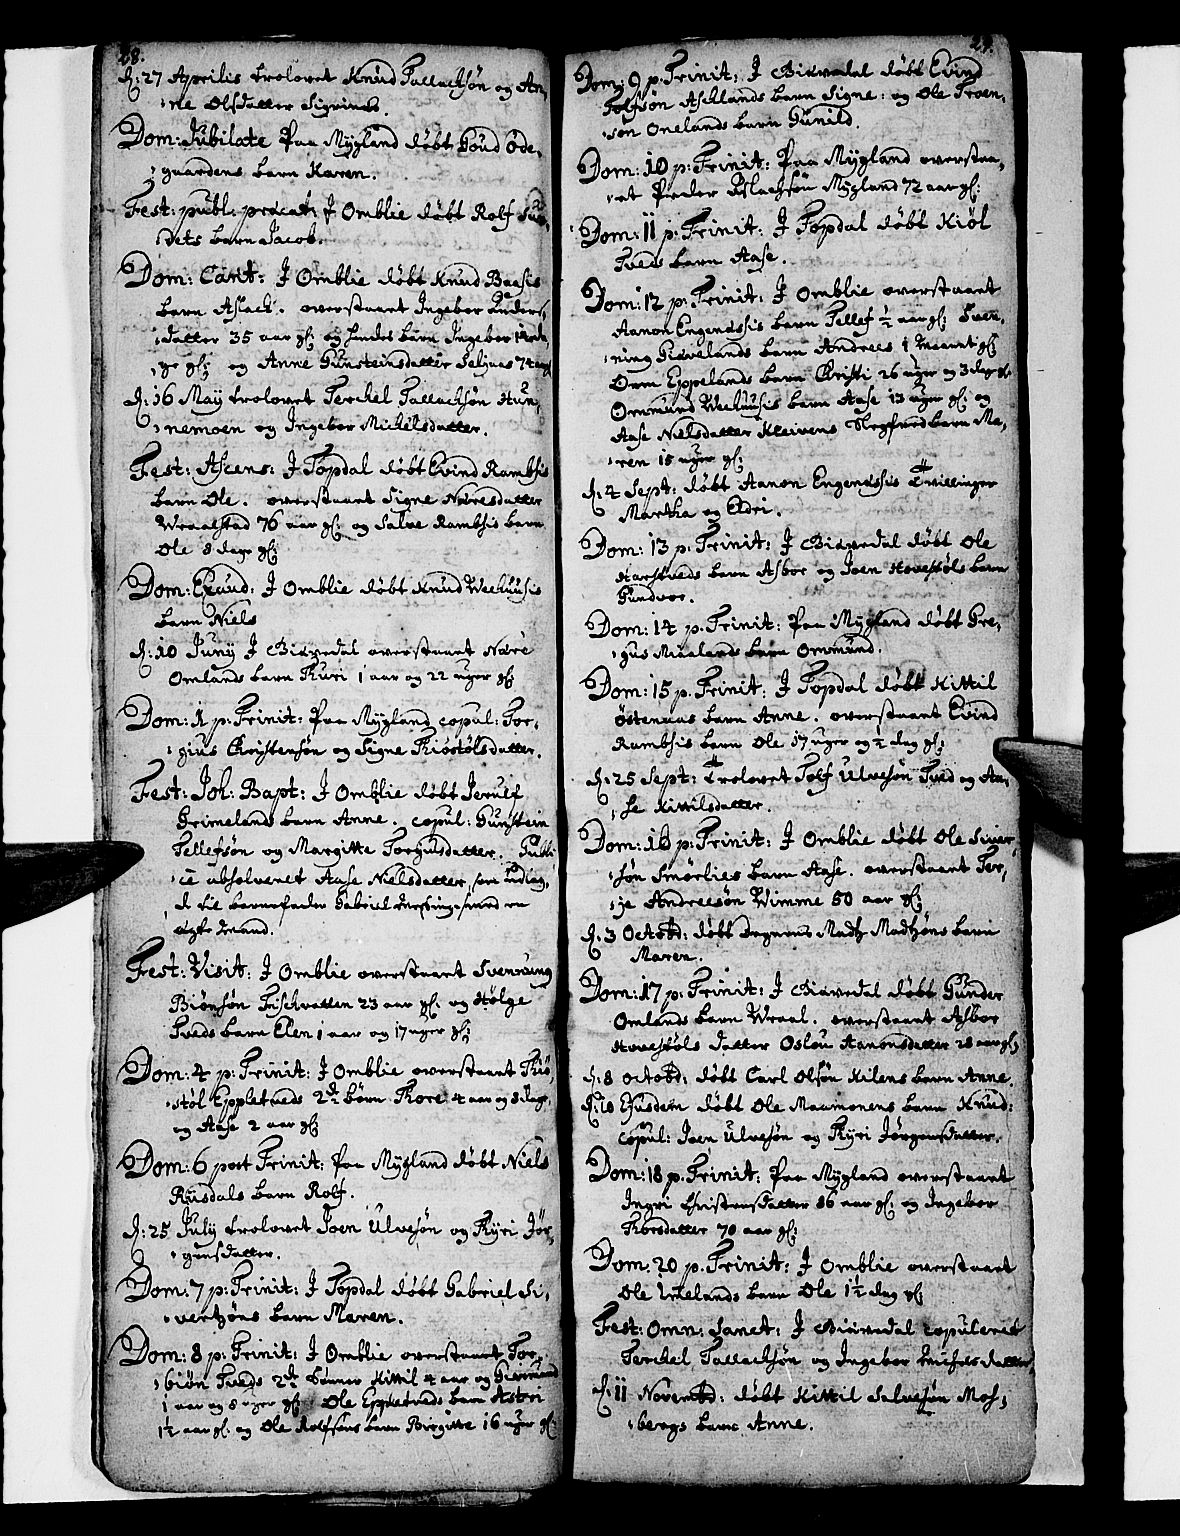 28.
d: 27 Aprilis trolovet Knud Tallachsøn og An,
ne Olsdatter Signines.
Dom: Jubilate Paa Mygland døbt Goud Øde,
gaardens barn Karen.
Fest: publ: precat: J Omblie døbt Rolf
dets barn Jacob.
Dom: Cant: J Omblie døbt Knud Baasis
barn Aslach. overstaaet Ingebor Anders,
datter 35 aar gl: og hendes barn Ingebor
ge gl: og Anne Gunsteinsdatter Seljaas 74 aar gl
d: 16 May trolovet Terchel Tallachsøn Hun,
nemoen og Ingebor Michelsdatter.
Fest: Ascens: J Topdal døbt Evind Rambsis
barn Ole. overstaaet Signe Naresdatter
Wraalstad 76 aar gl: og Salve Rambsis barn
Ole 8 dage gl:
Dom: Exaud: J Omblie døbt Knud Wehuusis
barn Niels
d: 10 Junij J Gixvedal overstaaet Nare
Omlands barn Thuri 1 aar og 22 uger gl:
Dom: 1 p: Trinit: Paa Mygland copul: Tor,
gius Christensøn og Signe Thiostolsdatter.
Fest: Joh: Bapt: J Omblie døbt Jerulf
Grimelands barn Anne. copul: Gunstein
Tellefsøn og Margitte Torgiusdatter. Publi
ce absolveret Aase Nielsdatter, som udlag,
de til barnefader Gabriel med en
ægte Mand.
Fest: Visit: J Omblie overstaaet Svennung
Biønsøn Fischvatten 23 aar gl: og Hølge
Tveds barn Elen 1 aar og 17 uger gl:
Dom: 4 p: Trinit: J Omblie overstaaet Thio,
støl Eppletveds 2de børn Thore 4 aar og 8 dage,
og Aase 2 aar gl:
Dom: 6 post Trinit: Paa Mygland døbt Niels
Rysdals barn Rolf.
d: 25 July trolovet Joen Ulvesøn og Kyri Jør,
gensdatter.
Dom: 7 p: Trinit: J Topdal døbt Gabriel Si,
vertsøns barn Maren.
Dom: 8 p: Trinit: J Omblie overstaaet Tor,
biøn Tveds 2de Sønner Kittil 4 aar og
1 aar og 8 uger gl: Ole Eppletveds barn Asteri
1½ aar gl: og Ole Rolfsøns barn Birgitte 16 uger gl:
29.
Dom: 9 p: Trinit: J Gixvedal døbt Evind
Tolfsøn Aschlands barn Signe: og Ole Troen,
søn Onelands barn Gunild.
Dom: 10 p: Trinit: Paa Mygland overstaa,
et Peder Aslachsøn Mygland 72 aar gl:
Dom: 11 p: Trinit: J Topdal døbt Kiøl
Tveds barn Aase.
Dom: 12 p: Trinit: J Omblie overstaaet
Aanon Engenessis barn Tellef ½ aar gl: Sven,
ning Gixvelands barn Andrees 1 maanet gl:
Orm Eppelands barn Christi 26 uger og 3 dage gl:
Ommund Wehuusis barn Aase 13 uger gl: og
Aase Nielsdatter Kleivens Slegfred barn Ma,
ren 15 uger gl:
d: 4 Sept: døbt Aanon Engenessis Tvillinger
Martha og Eldri.
Dom: 13 p: Trinit: J Gixvedal døbt Ole
Harstveds barn Asbor og Joen Hovestøls barn
Gundvor.
Dom: 14 p: Trinit: Paa Mygland døbt Gre,
gus Miaalands barn Ommund.
Dom: 15 p: Trinit: J Topdal døbt Kittil
Østenaas barn Anne. overstaaet Evind
Rambsis barn Ole 17 uger og ½ dag gl:
d: 25 Sept: trolovet Tolf Ulvesøn Tved og Aa,
se Kittilsdatter.
Dom: 16 p: Trinit: J Omblie døbt Ole Siver,
søn Smørlies barn Aase. overstaaet Ter,
je Andreesøn Wimme 50 aar gl:
d: 3 Octobr: døbt Degnens Madtz Madtzøns barn
Maren.
Dom: 17 p: Trinit: J Gixvedal døbt Gunder
Omlands barn Wraal. overstaaet Asbor
Hovestøls datter Oslou Aanonsdatter 28 aar gl:
d: 8 Octobr: døbt Carl Olsøn Kilens barn Anne.
d: 10 Ejusdem døbt Ole Maamonens barn Knud:
copul: Joen Ulvesøn og Kyri Jørgensdatter.
Dom: 18 p: Trinit: Paa Mygland overstaaet
Ingri Christensdatter 86 aar gl: og Ingebor
Thorsdatter 70 aar gl:
Dom: 20 p: Trinit: J Omblie overstaaet
Ole Uvelands barn Ole 1½ dag gl:
Fest: Omn: Sanct: J Gixvedal copuleret
Terchel Tallachsøn og Ingebor Michelsdatter
d: 11 Novembr: døbt Kittil Salvesøn Mos,
bergs barn Anne.